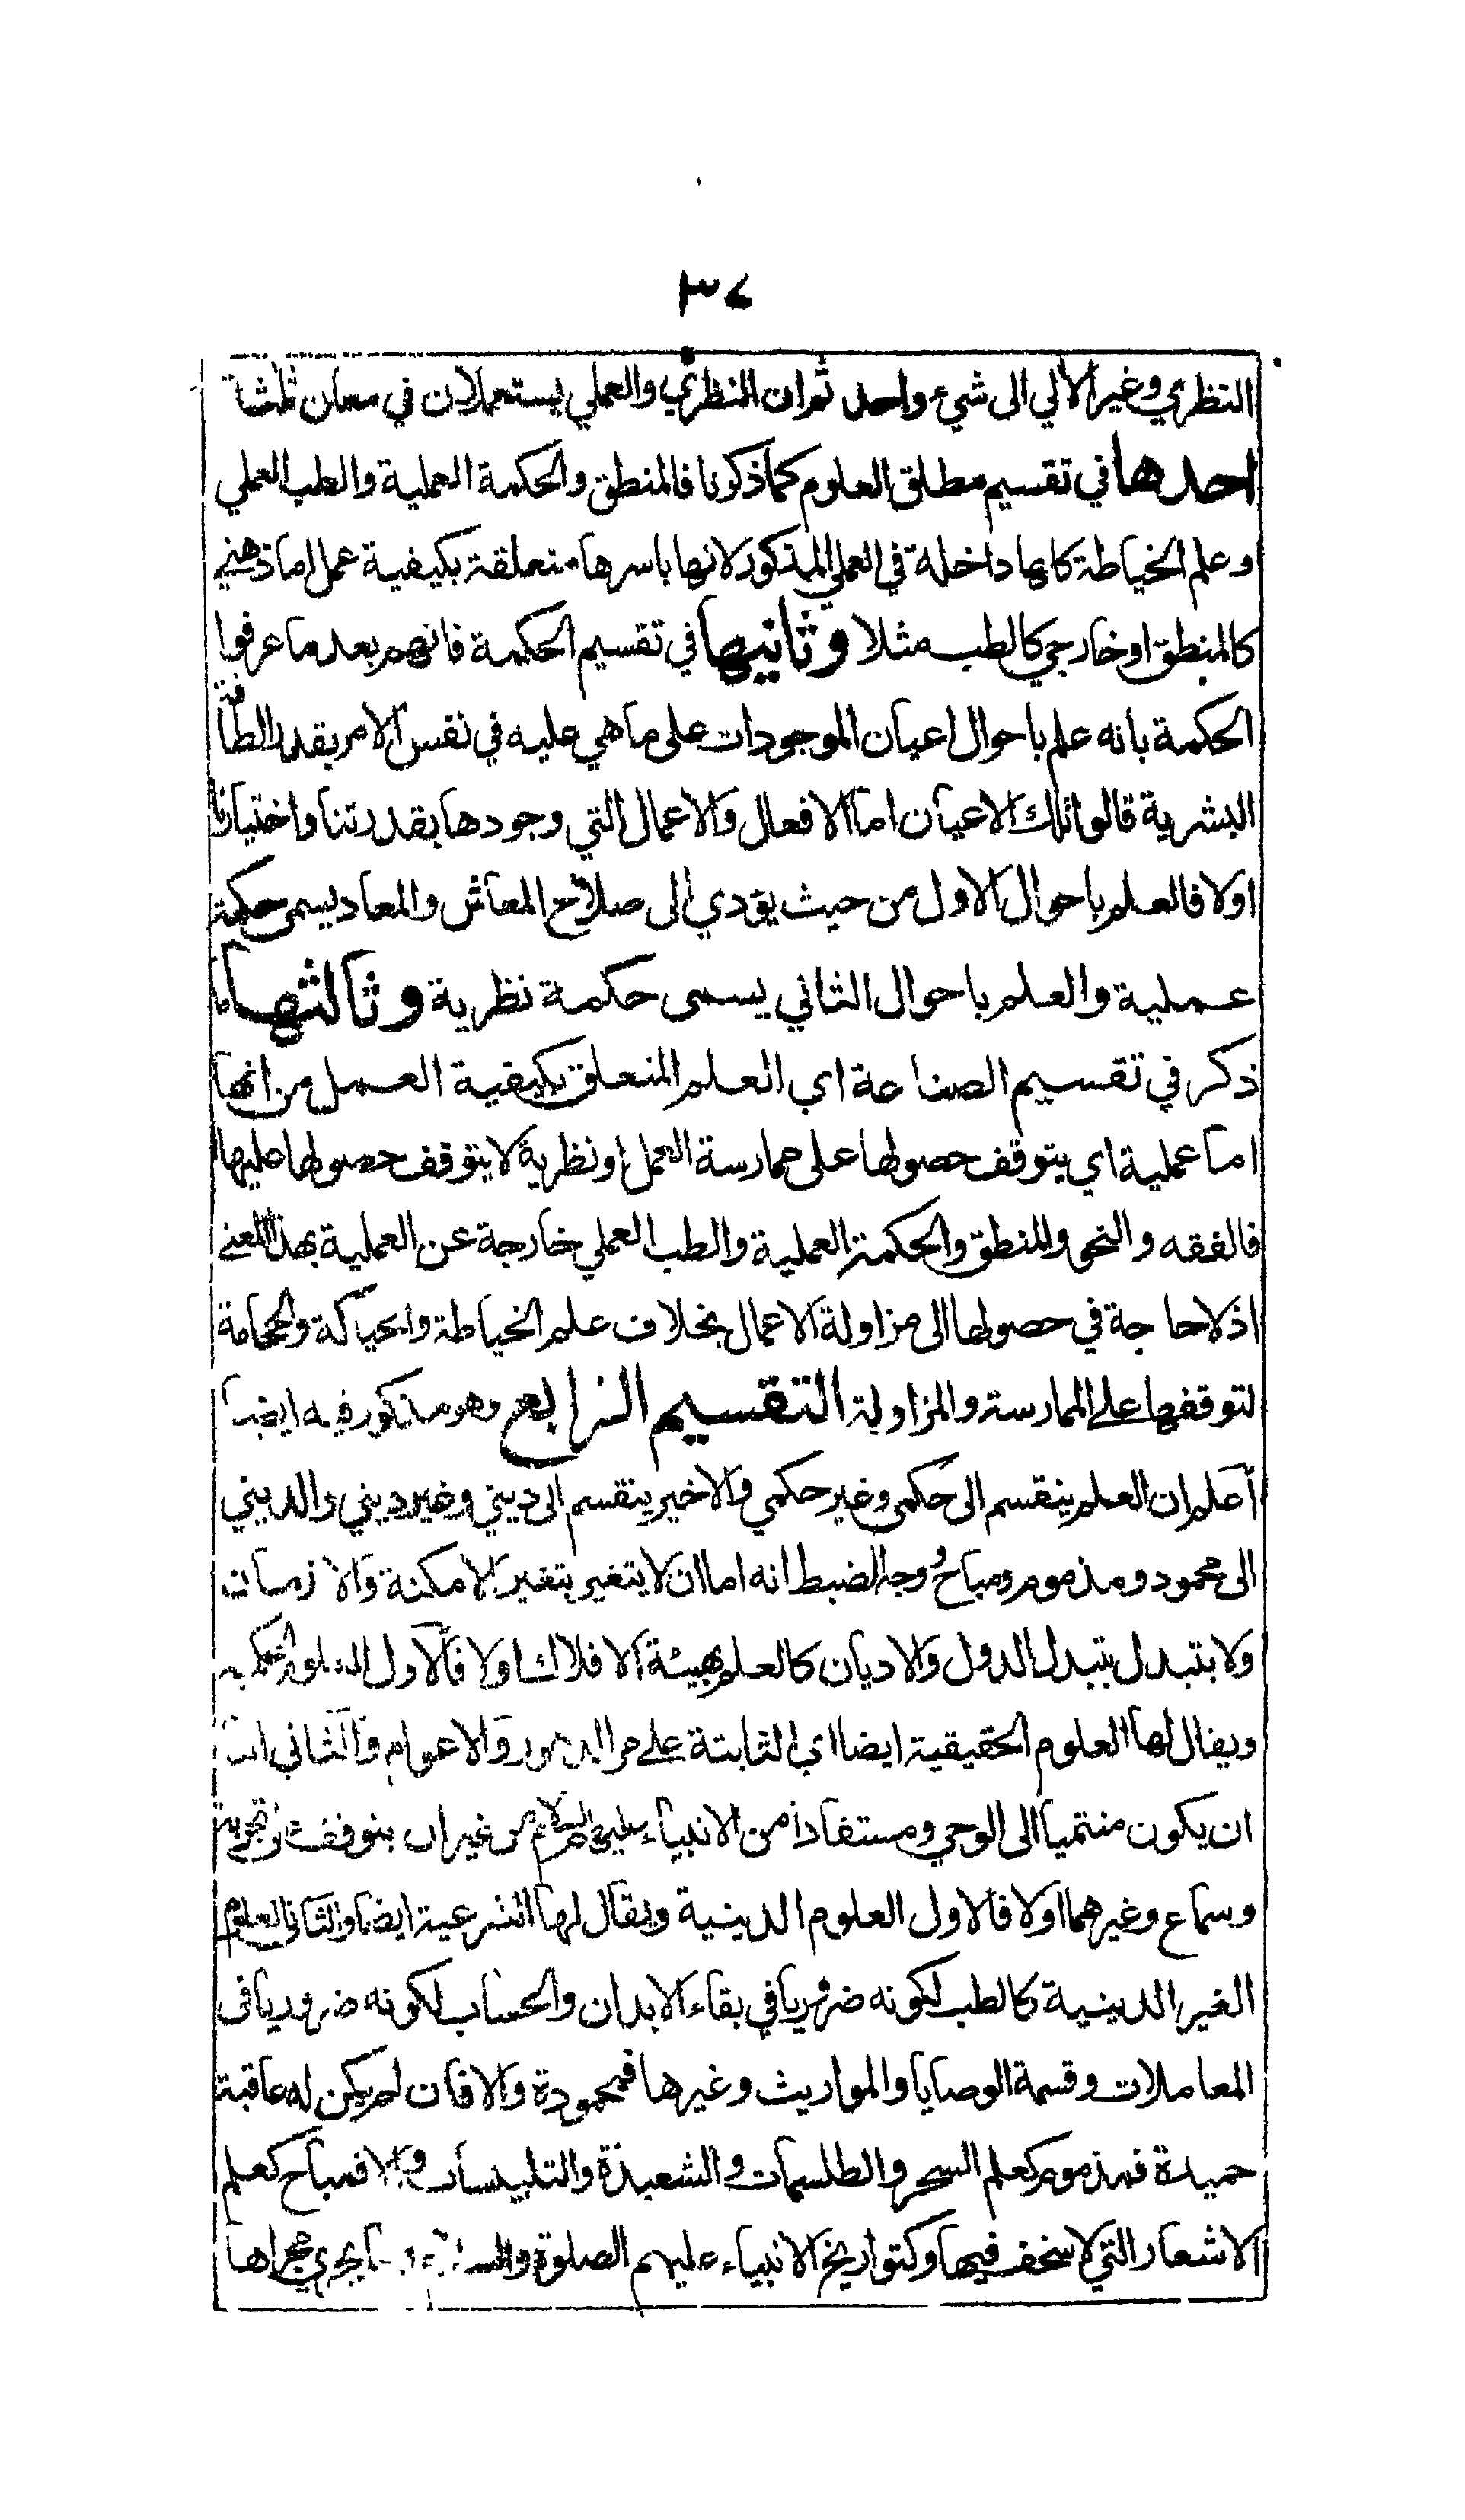 ٣٤
النظري وغير الآلي الى شيء واحد ثم ان النظري والعملي يستعملان في معان ثلثة
احدها في تقسيم مطلق العلوم كما ذكرنا فالمنطق والحكمة العملية والطب العملي
وعلم الخياطة كلها داخلة في العملي المذكور لانها باسرها متعلقة بكيفية عمل اما ذهني
كالمنطق او خارجي كالطب مثلا وثانيها في تقسيم الحكمة فانهم بعد ما عرفوا
الحكمة بانه علم باحوال اعيان الموجودات على ما هي عليه في نفس الامر بقدر الطاقة
البشرية قالوا تلك الاعيان اما الافعال والاعمال التي وجودها بقدرتنا واختيارنا
اولا فالعلم باحوال الاول من حيث يؤدي الى صلاح المعاش والمعاد يسمى حكمة
عملية والعلم باحوال الثاني يسمى حكمة نظرية وثالثها ما
ذكر في تقسيم الصناعة اي العلم المتعلق بكيفية العمل من انها
اما عملية اي يتوقف حصولها على ممارسة العمل او نظرية لا يتوقف حصولها عليها
فالفقه والنحو والمنطق والحكمة العملية والطب العملي خارجة عن العملية بهذا المعنى
اذ لا حاجة في حصولها الى مزاولة الاعمال بخلاف علم الخياطة والحياكة والحجامة
لتوقفها على الممارسة والمزاولة التقسيم الرابع وهو مذكور فيه ايضا
اعلم ان العلم ينقسم الى حكمي وغير حكمي والاخير ينقسم الى ديني وغير ديني والديني
الى محمود ومذموم ومباح ووجه الضبط انه اما ان لا يتغير بتغير الامكنة والازمان
ولا يتبدل بتبدل الدول والاديان كالعلم بهيئة الافلاك اولا فالاول العلوم الحكمية
ويقال لها العلوم الحقيقية ايضا اي الثابتة على مر الدهور والاعوام والثاني اما
ان يكون منتميا الى الوحي ومستفادا من الانبياء عليهم السلام من غير ان يتوقف على تجربة
وسماع وغيرهما اولا فالاول العلوم الدينية ويقال لها الشرعية ايضا والثاني العلوم
الغير الدينية كالطب لكونه ضروريا في بقاء الابدان والحساب لكونه ضروريا في
المعاملات وقسمة الوصايا والمواريث وغيرها فمحمودة والا فان لم يكن له عاقبة
حميدة فمذموم كعلم السحر والطلسمات والشعبذة والتلبيسات والا فمباح كعلم
الاشعار التي لا سخف فيها وكتواريخ الانبياء عليهم الصلوة يجري مجراها